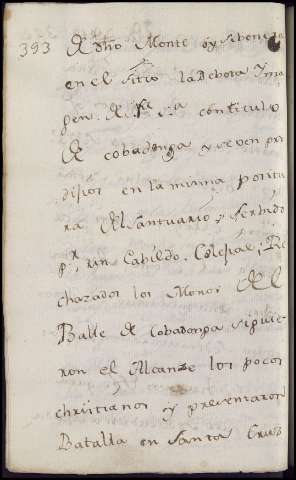 393 de dho Monte oy se benera
en el sitio la Debota Yma
gen de con titulo
de cobadonga y se ven pr
dijios en la misma pontu
ra del Santuario, y serbido
pr. un Cabildo, Colejial; Re
chazados los Moros del
Balle de Cobadonga siguie-
ron el Alcanse los pocos
christianos y presentaron
Batalla en Santa Cruz